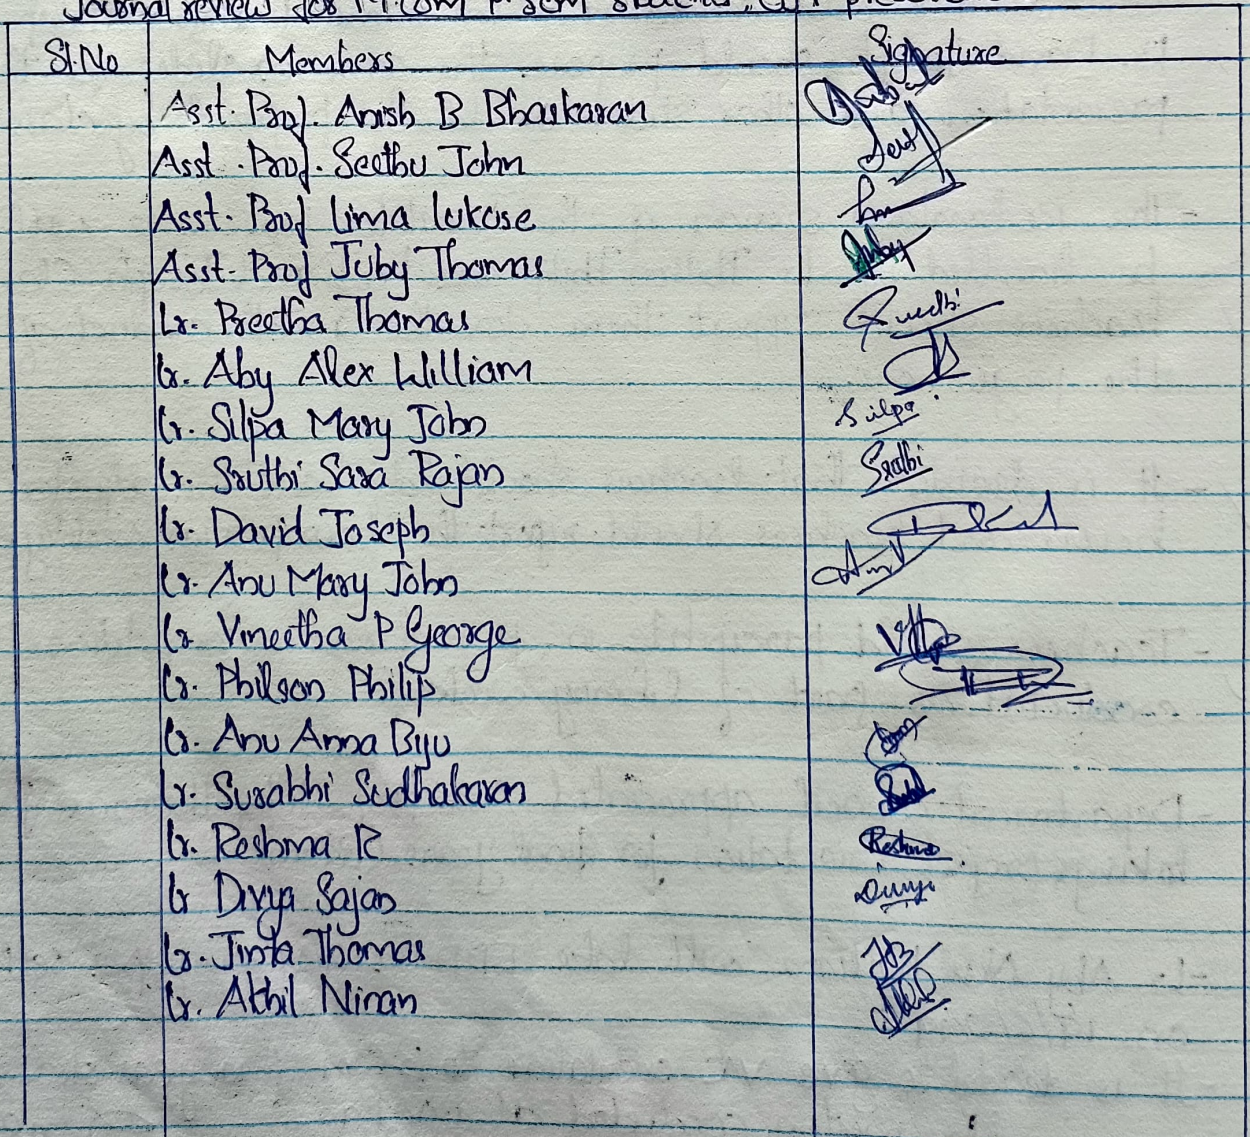 Journal review for M.Com
Sl.No Members Signature
Asst. Prof. Anish B Bhaskaran
Asst. Prof. Seethu John
Asst. Prof Lima Lukose
Asst. Prof Juby Thomas Juby
Lr. Preetha Thomas
Lr. Aby Alex William
Lr. Silpa Mary John Silpa
Lr. Sruthi Sara Rajan Sruthi
Lr. David Joseph
Lr. Anu Mary John
Lr Vineetha P George
Lr. Philson Philip
Lr. Anu Anna Biju
Lr. Surabhi Sudhakaran
Lr. Reshma R Reshma
Lr Divya Sajan Divya
Lr. Jinta Thomas
Lr. Akhil Ninan Akhil